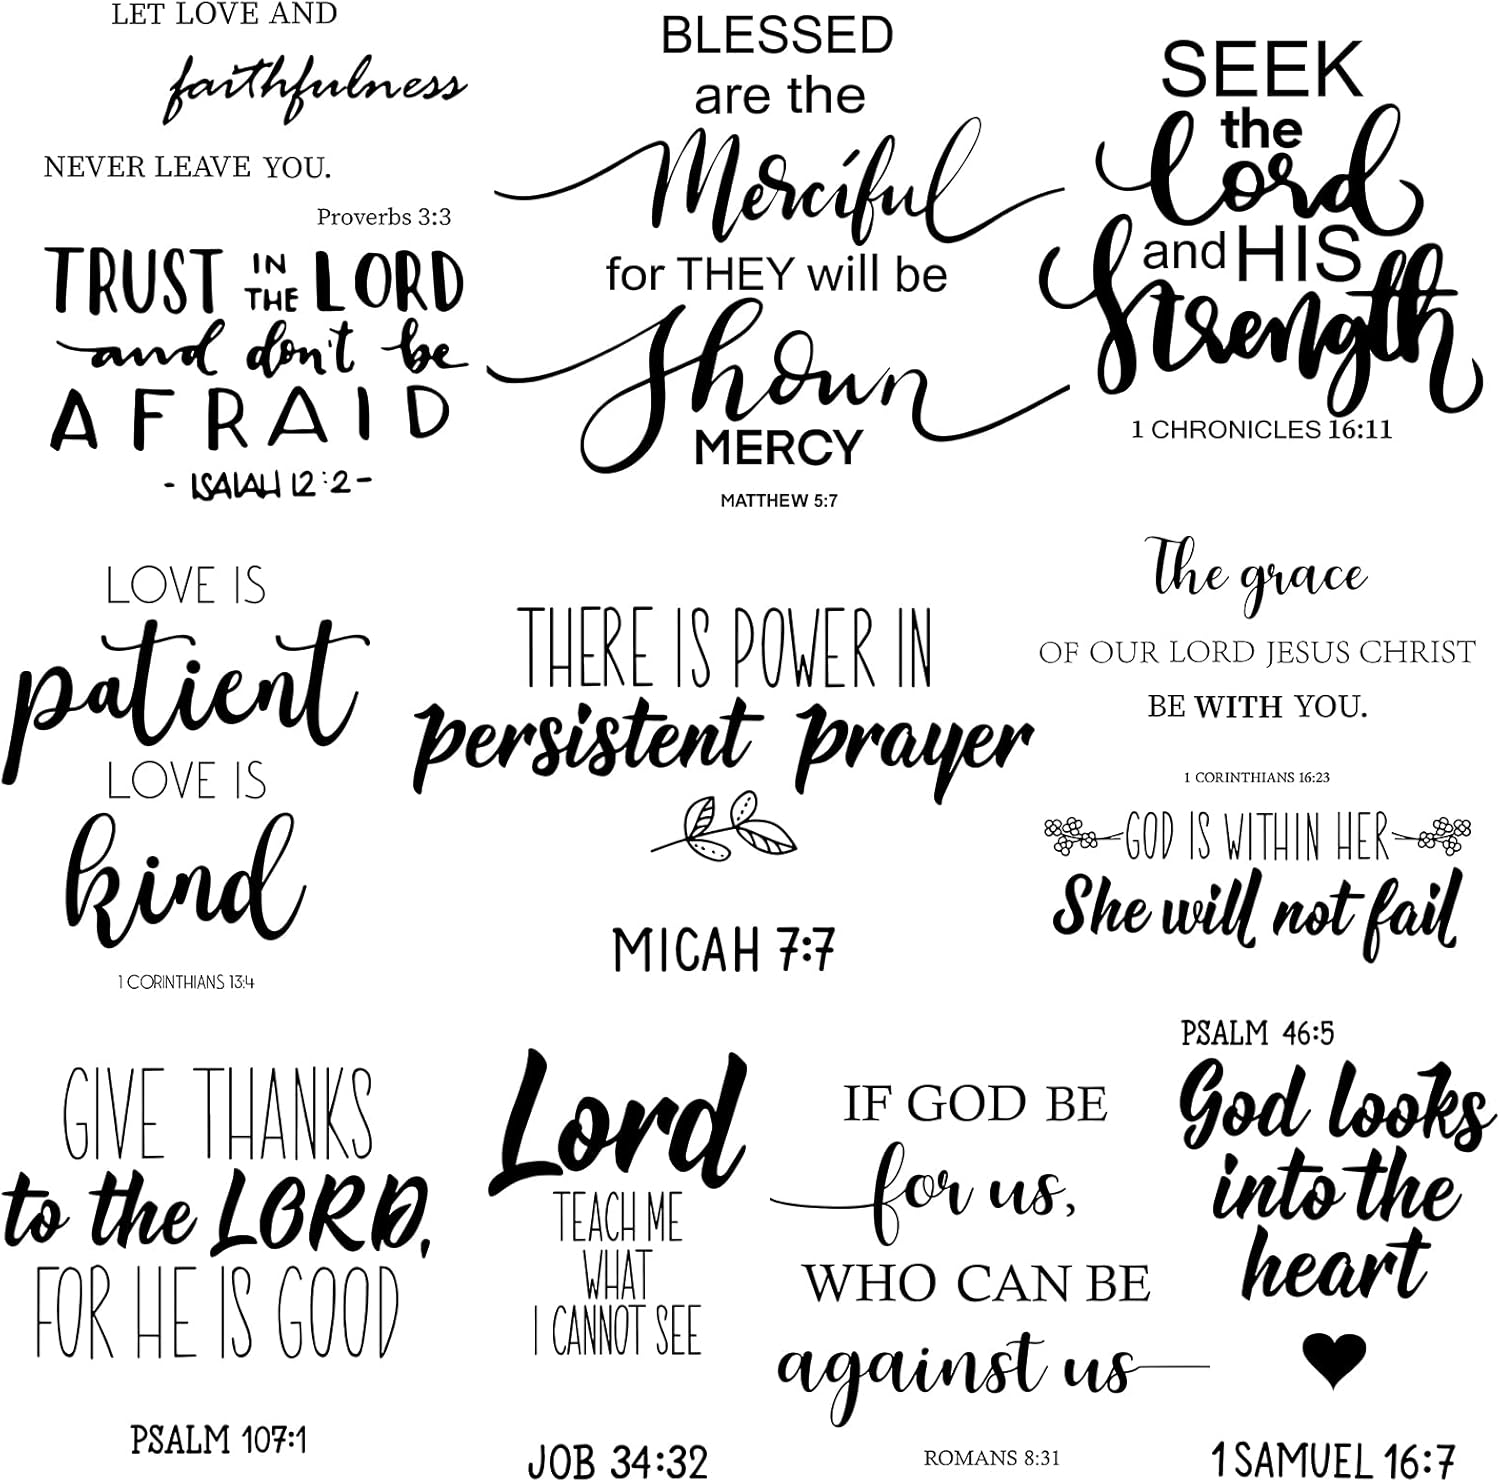 LET LOVE AND
faithfulness
NEVER LEAVE YOU.
Proverbs 3:3
TRUST IN THE LORD
and don't be
AFRAID
- ISAIAH 12:2 -
BLESSED
are the
Merciful
for THEY will be
Shown
MERCY
MATTHEW 5:7
SEEK
the
Lord
and HIS
Strength
1 CHRONICLES 16:11
LOVE IS
patient
LOVE IS
kind
1 CORINTHIANS 13:4
THERE IS POWER IN
persistent prayer
MICAH 7:7
The grace
OF OUR LORD JESUS CHRIST
BE WITH YOU.
1 CORINTHIANS 16:23
GOD IS WITHIN HER
She will not fail
PSALM 46:5
GIVE THANKS
to the LORD,
FOR HE IS GOOD
PSALM 107:1
Lord
TEACH ME
WHAT
I CANNOT SEE
JOB 34:32
IF GOD BE
for us,
WHO CAN BE
against us
ROMANS 8:31
God looks
into the
heart
1 SAMUEL 16:7